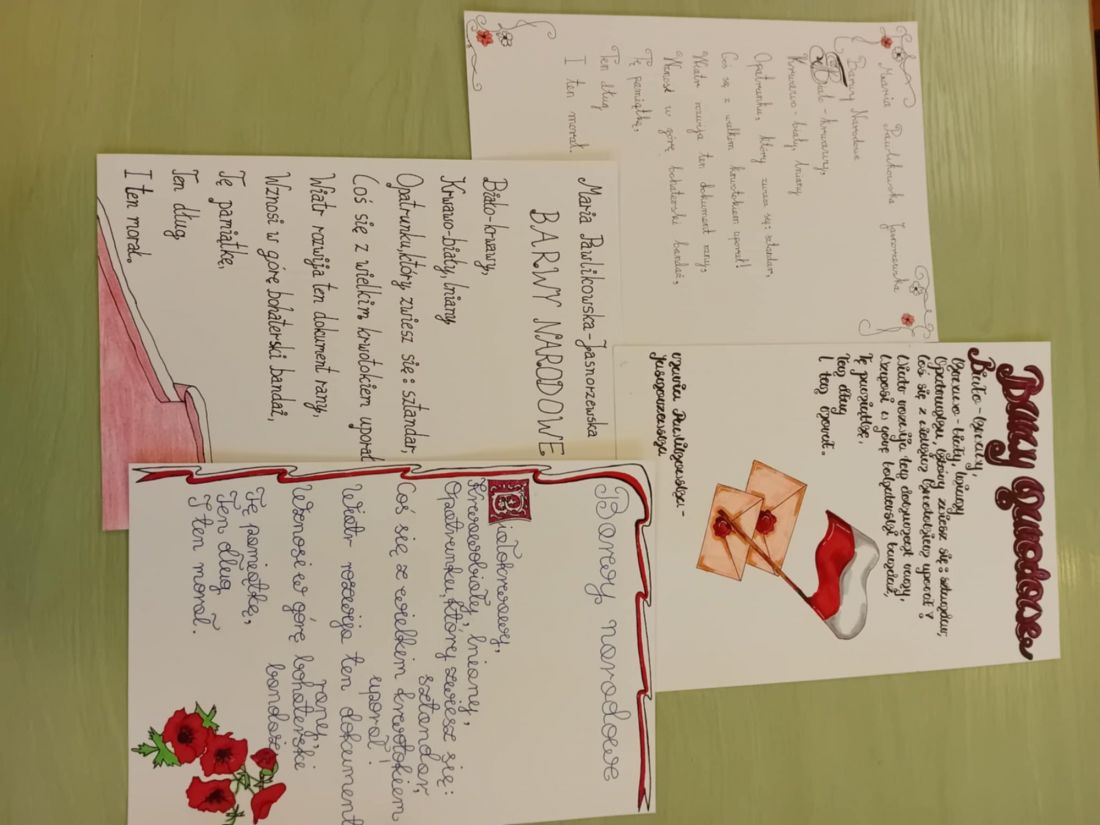 Maria Pawlikowska Jasnorzewska
Barwy Narodowe
Biało-krwawy,
Krwawo-biały, lniany
Opatrunku, który zwiesz się: sztandar,
Coś się z wielkim krwotokiem uporał!
Wiatr rozwija ten dokument rany,
Wznosi w górę bohaterski bandaż,
Tę pamiątkę,
Ten dług
I ten morał.
Barwy narodowe
Biało-krwawy,
Krwawo-biały, lniany
Opatrunku, który zwiesz się: sztandar,
Coś się z wielkim krwotokiem uporał!
Wiatr rozwija ten dokument rany,
Wznosi w górę bohaterski bandaż,
Tę pamiątkę,
Ten dług
I ten morał.
Maria Pawlikowska-
Jasnorzewska
Maria Pawlikowska-Jasnorzewska
BARWY NARODOWE
Biało-krwawy,
Krwawo-biały, lniany
Opatrunku, który zwiesz się: sztandar,
Coś się z wielkim krwotokiem uporał
Wiatr rozwija ten dokument rany,
Wznosi w górę bohaterski bandaż,
Tę pamiątkę,
Ten dług
I ten morał.
Barwy narodowe
Białokrwawy,
Krwawobiały, lniany,
Opatrunku, który zwiesz się:
sztandar,
Coś się z wielkim krwotokiem
uporał!
Wiatr rozwija ten dokument
rany,
Wznosi w górę bohaterski
bandaż
Tę pamiątkę,
Ten dług
I ten morał.